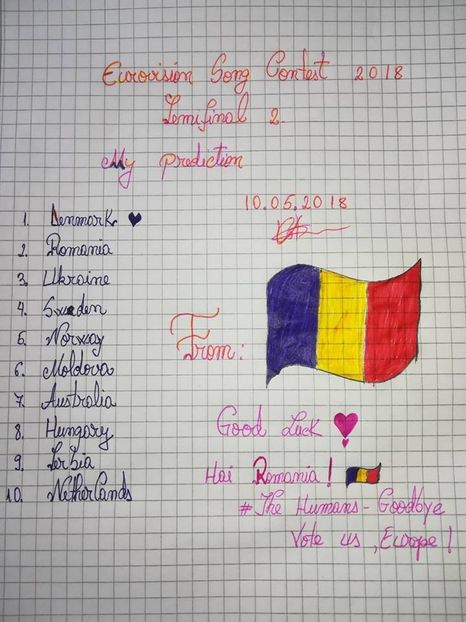 Eurovision Song Contest 2018
Semifinal 2.
My prediction
10.05.2018
1. Denmark
2. Romania
3. Ukraine
4. Sweden
5. Norway
6. Moldova
7. Australia
8. Hungary
9. Serbia
10. Netherlands
From:
Good Luck
Hai Romania!
#The Humans - Goodbye
Vote us, Europe!